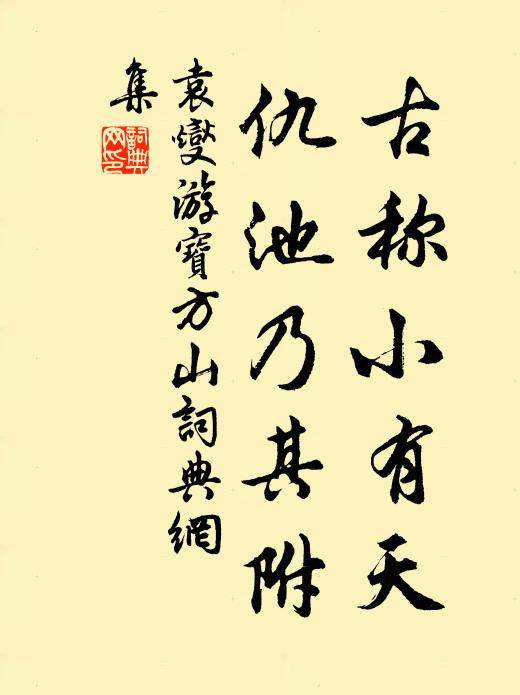 古称小有天
仇池乃其附
袁燮游寶方山詞典網
集
詞典網印